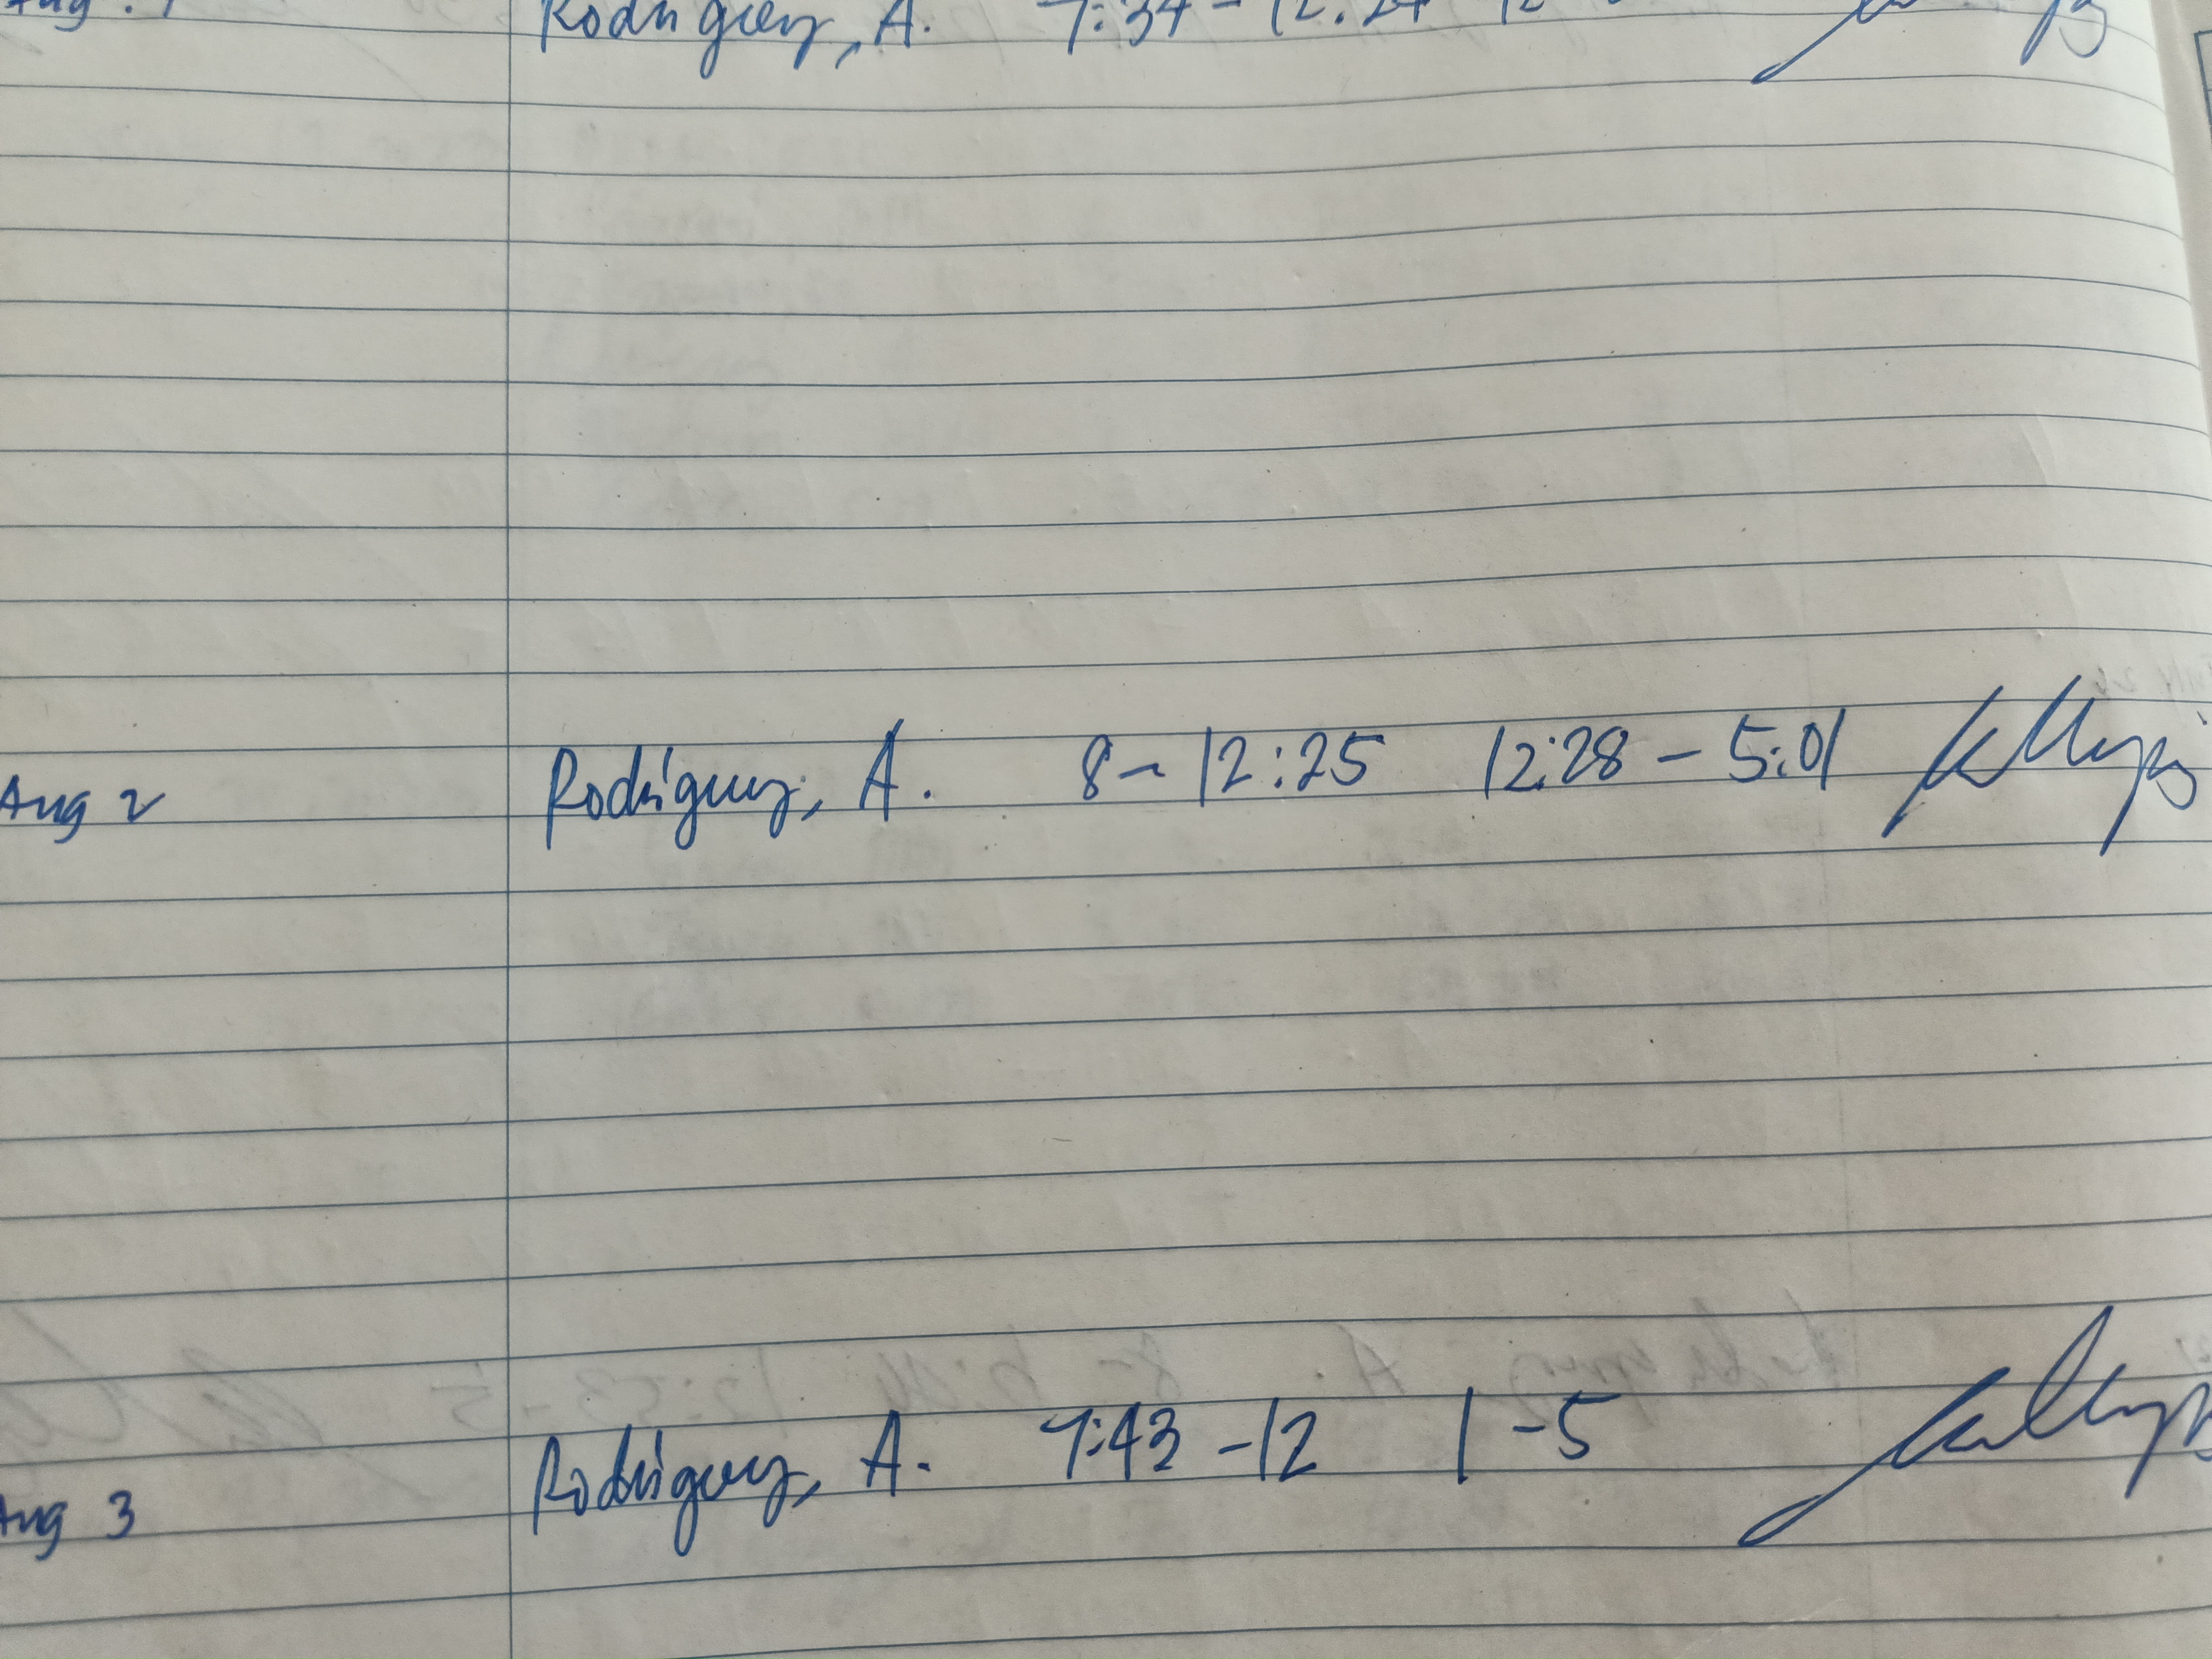 Aug. 1 Rodriguez, A. 7:34 - 12:24 12
Aug 2 Rodriguez, A. 8 - 12:25 12:28 - 5:01
Aug 3 Rodriguez, A. 7:43 - 12 1 - 5